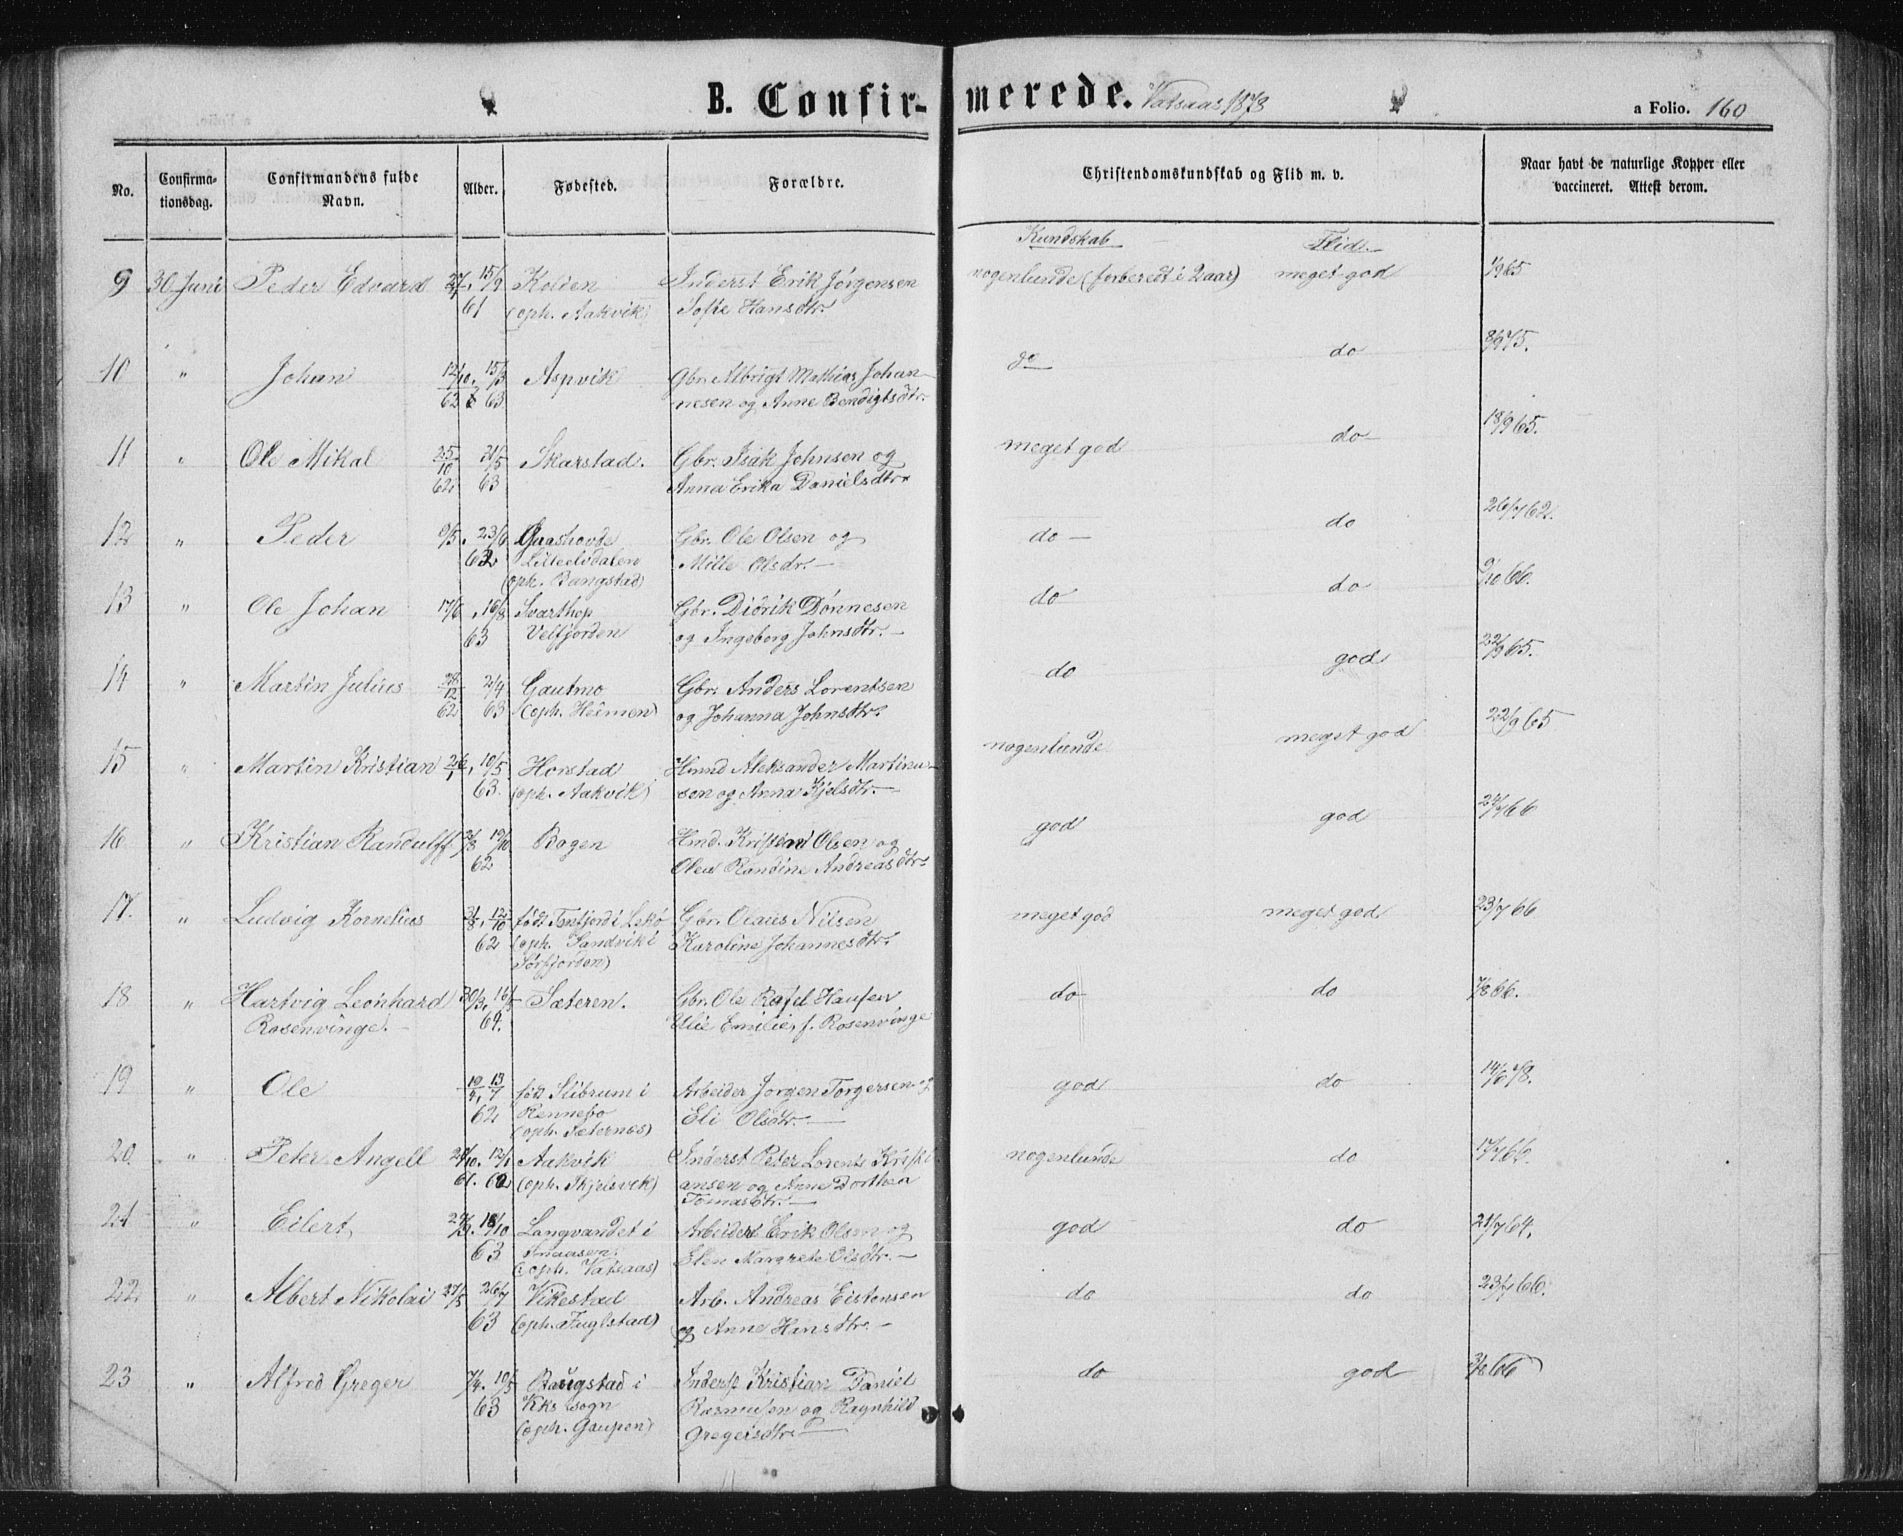 B. Confir-merede. Vatsaas 1878
a Folio. 160
No. Confirma-tionsdag. Confirmandens fulde Navn. Alder. Fødested. Forældre. Christendomskundskab og Flid m. v. Naar havt de naturlige Kopper eller vaccineret. Attest derom.
Kundskab Flid
9 30 Juni Peder Edvard 15/9 Kolien Inderst Erik Jörgensen nogenlunde (forberedt i 2 aar) meget god 1/9 65
61 (oph. Aakvik) Sofie Hansdtr.
10 " Johan 12/10 15/3 Aspvik Gbr. Albrigt Mathias Johan- do do
62 63 nesen og Anne Bendigtsdtr.
11 " Ole Mikal 25/10 21/5 Skarstad. Gbr. Isak Johnsen og meget god do 18/9 65.
62 63 Anna Erika Danielsdtr.
12 " Peder 9/5. 23/6 Gaashovde Gbr. Ole Olsen og do do 26/7 62.
62 Lilleelvdalen Mille Olsdr.
(oph. Bangstad)
13 " Ole Johan 17/6. 16/8 Svarthop Gbr. Didrik Dönnesen do do 9/10 66.
63 Velfjorden og Ingeborg Johnsdtr.
14 " Martin Julius 28/12 2/4 Gautmo Gbr. Anders Lorentsen do god 22/9 65.
62 63 (oph. Heimen) og Johanna Johnsdtr.
15 " Martin Kristian 26/1. 10/5 Horstad Hmd Aleksander Martinu- nogenlunde meget god 22/9 65
63. (oph. Aakvik) sen og Anna Kjelsdtr.
16 " Kristian Randulff 19/10 Bogen Hmd. Kristen Olsen og god god 66
62 Olea Randine Andreasdtr.
17. " Ludvig Kornelius 31/8. 12/10 født i Lekö Gbr. Olaus Nilsen meget god meget god 23/7 66
62 (oph. Sandvik i Karoline Johannesdtr.
Sörfjorden)
18 " Hartvig Leonhard 30/3. 16/5 Sæteren. Gbr. Ole Rafel Hansen do do 7/8 66.
Rosenvinge. 64. Emilie, f. Rosenvinge
19 " Ole 19/4. 13/7 født Slibrum i Arbeider Jorgen Torgersen og god do
62 Rennebo Eli Olsdtr.
(oph. Sæternes)
20. " Peter Angell 12/1 Aakvik Inderst Peter Lorents Kristi nogenlunde do 17/7 66.
61. 62 (oph. Skjelsvik) ansen og Anne Dorthea
Tomasdtr.
21 " Eilert 18/10 Langvandet i Arbeider Erik Olsen og god do 21/7 64.
63 Snaasen Elen Margrete Olsdtr.
(oph. Vatsaas)
22 " Albert Nikolai 27/5 26/7 Vikestad Arb. Andreas Eistensen do do 23/7 66.
63 (oph. Fuglstad) og Anne Hansdtr.
23 " Alfred Greger 7/4. 10/5 Baugstad i Inderst Kristian Daniel do god 66
63 sogn Rasmusen og Ragnhild
(oph. Gaupen) Gregersdtr.